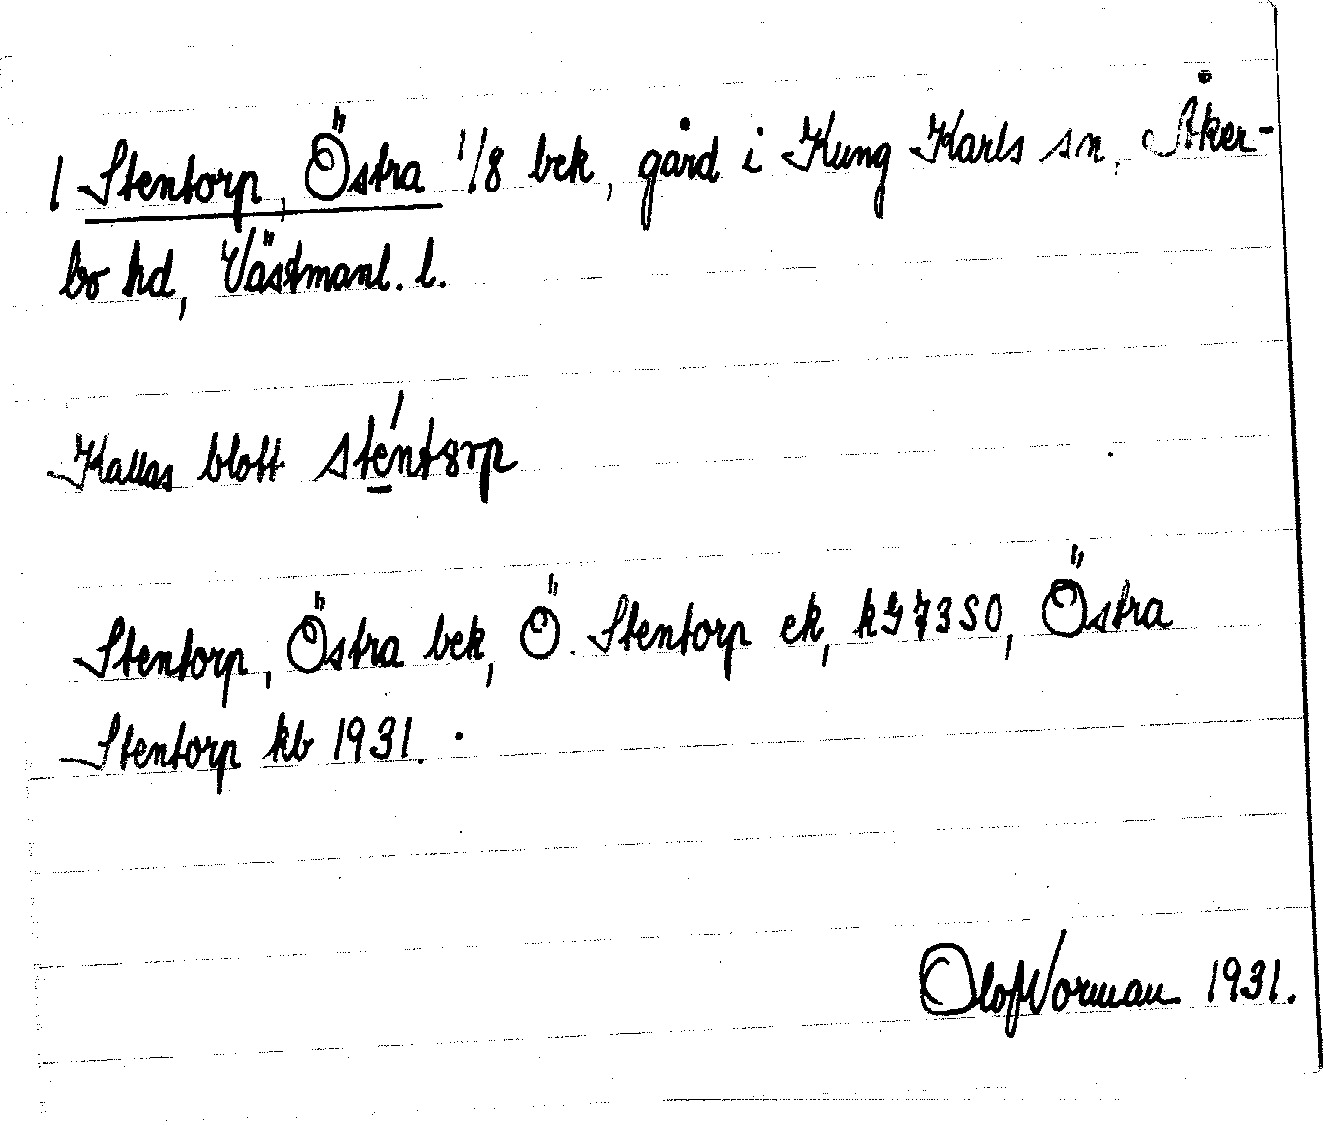 1 Stentorp, Östra 1/8 bek, gård i Kung Karls sn, Åker-
bo hd, Västmanl. l.
Kallas blott sténtɜrp
Stentorp, Östra bek, Ö. Stentorp ek, kG7350, Östra
Stentorp kb 1931.
Olof Norman 1931.